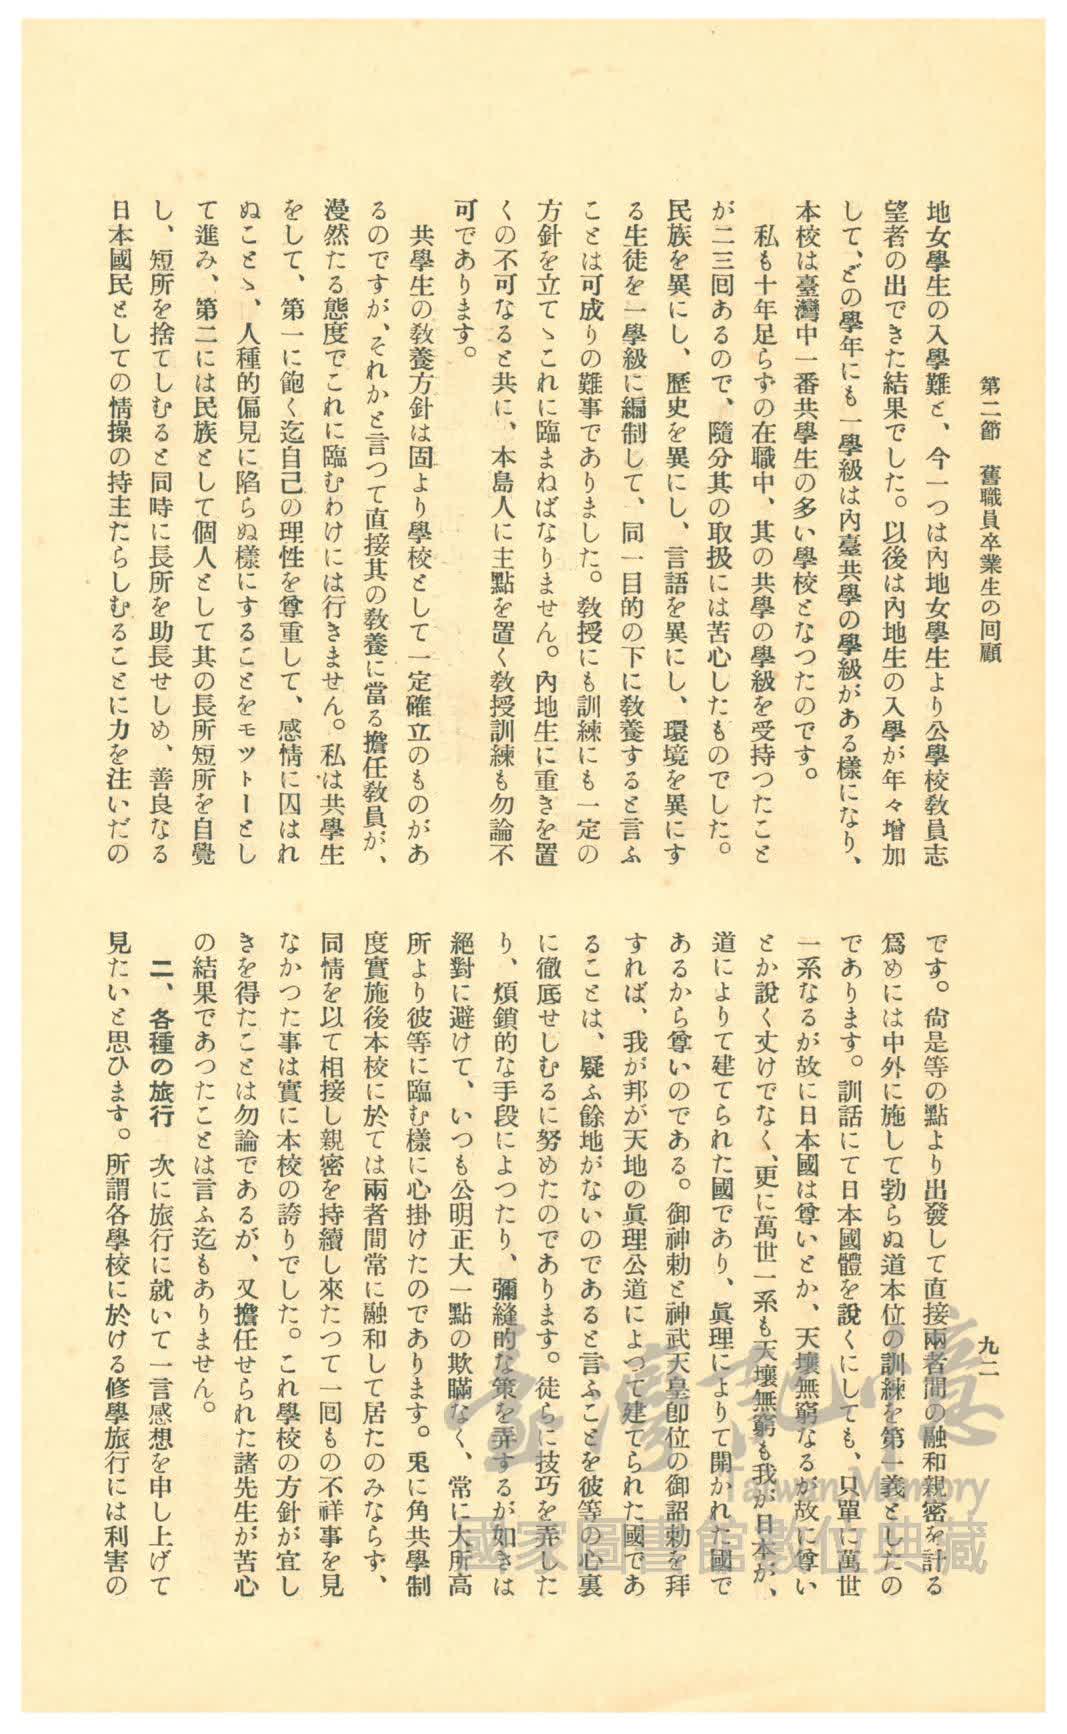 第二節　舊職員卒業生の回顧
九二
地女學生の入學難と、今一つは內地女學生より公學校敎員志
望者の出できた結果でした。以後は內地生の入學が年々增加
して、どの學年にも一學級は內臺共學の學級がある樣になり、
本校は臺灣中一番共學生の多い學校となつたのです。
私も十年足らずの在職中、其の共學の學級を受持つたこと
が二三囘あるので、隨分其の取扱には苦心したものでした。
民族を異にし、歷史を異にし、言語を異にし、環境を異にす
る生徒を一學級に編制して、同一目的の下に敎養すると言ふ
ことは可成りの難事でありました。敎授にも訓練にも一定の
方針を立てゝこれに臨まねばなりません。內地生に重きを置
くの不可なると共に、本島人に主點を置く敎授訓練も勿論不
可であります。
共學生の敎養方針は固より學校として一定確立のものがあ
るのですが、それかと言つて直接其の敎養に當る擔任敎員が、
漫然たる態度でこれに臨むわけには行きません。私は共學生
をして、第一に飽く迄自己の理性を尊重して、感情に囚はれ
ぬことゝ、人種的偏見に陷らぬ樣にすることをモツトーとし
て進み、第二には民族として個人として其の長所短所を自覺
し、短所を捨てしむると同時に長所を助長せしめ、善良なる
日本國民としての情操の持主たらしむることに力を注いだの
です。尙是等の點より出發して直接兩者間の融和親密を計る
爲めには中外に施して勃らぬ道本位の訓練を第一義としたの
であります。訓話にて日本國體を說くにしても、只單に萬世
一系なるが故に日本國は尊いとか、天壤無窮なるが故に尊い
とか說く丈けでなく、更に萬世一系も天壤無窮も我が日本が、
道によりて建てられた國であり、眞理によりて開かれた國で
あるから尊いのである。御神勅と神武天皇卽位の御詔勅を拜
すれば、我が邦が天地の眞理公道によつて建てられた國であ
ることは、疑ふ餘地がないのであると言ふことを彼等の心裏
に徹底せしむるに努めたのであります。徒らに技巧を弄した
り、煩鎖的な手段によつたり、彌縫的な策を弄するが如きは
絕對に避けて、いつも公明正大一點の欺瞞なく、常に大所高
所より彼等に臨む樣に心掛けたのであります。兎に角共學制
度實施後本校に於ては兩者間常に融和して居たのみならず、
同情を以て相接し親密を持續し來たつて一囘もの不祥事を見
なかつた事は實に本校の誇りでした。これ學校の方針が宜し
きを得たことは勿論であるが、又擔任せられた諸先生が苦心
の結果であつたことは言ふ迄もありません。
二、各種の旅行　次に旅行に就いて一言感想を申し上げて
見たいと思ひます。所謂各學校に於ける修學旅行には利害の
臺灣記憶
Taiwan Memory
國家圖書館數位典藏